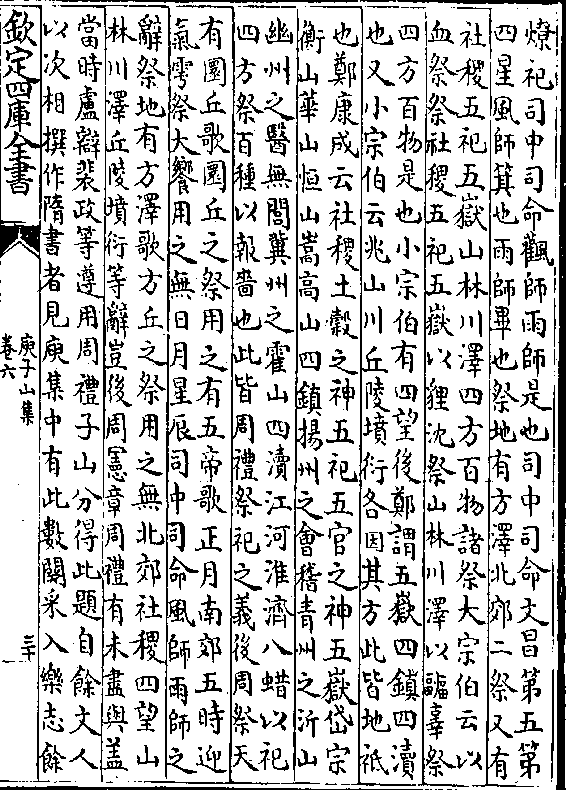 燎祀司中司命觀師雨師是也司中司命文昌第五第
四星風師箕也雨師畢也祭地有方澤北郊二祭又有
社稷五祀五嶽山林川澤四方百物諸祭大宗伯云以
血祭祭社稷五祀五嶽以貍沈祭山林川澤以疈辜祭
四方百物是也小宗伯有四望後鄭謂五嶽四鎮四瀆
也又小宗伯云兆山川丘陵墳衍各因其方此皆地祇
也鄭康成云社稷土穀之神五祀五官之神五嶽岱宗
衡山華山恒山嵩高山四鎮揚州之會稽青州之沂山
幽州之醫無閭冀州之霍山四瀆江河淮濟八蜡以祀
四方祭百種以報嗇也此皆周禮祭祀之義後周祭天
有圜丘歌圜丘之祭用之有五帝歌正月南郊五時迎
氣雩祭大饗用之無日月星辰司中司命風師雨師之
辭祭地有方澤歌方丘之祭用之無北郊社稷四望山
林川澤丘陵墳衍等辭豈後周憲章周禮有未盡與蓋
當時盧辯裴政等遵用周禮子山分得此題自餘文人
以次相撰作隋書者見庾集中有此數闋采入樂志餘
欽定四庫全書
庾子山集
卷六
三十